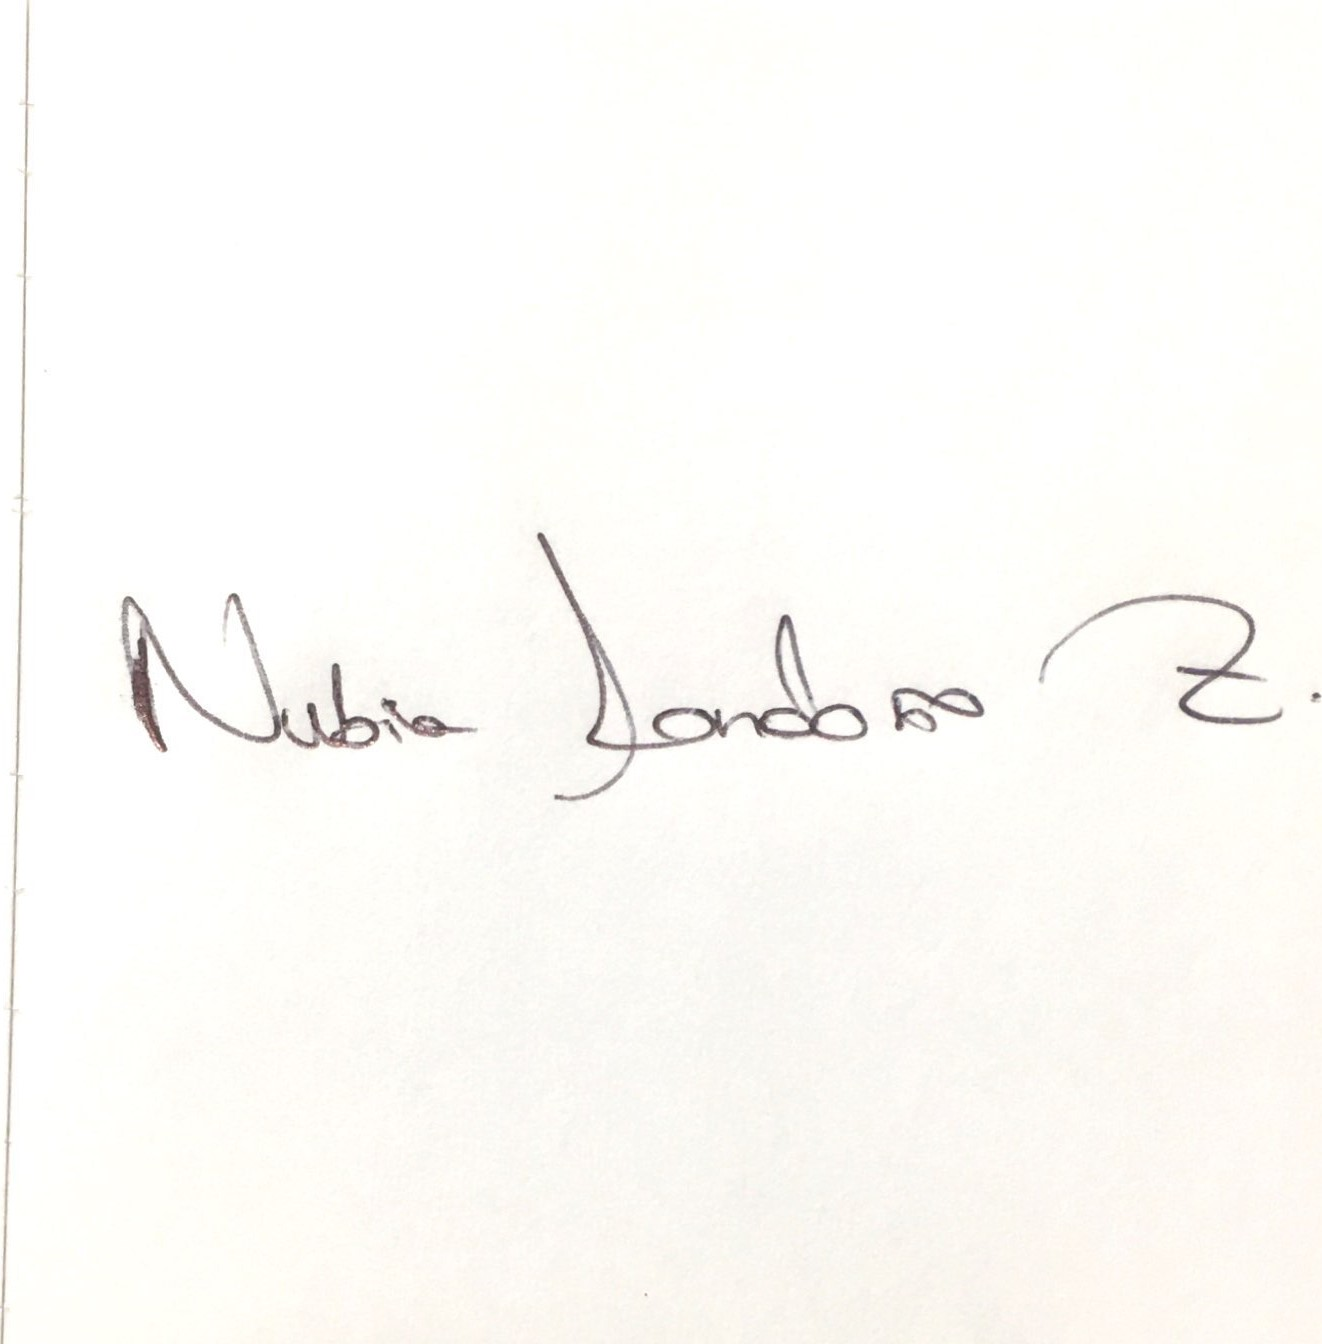 Nubia Londoño Z.